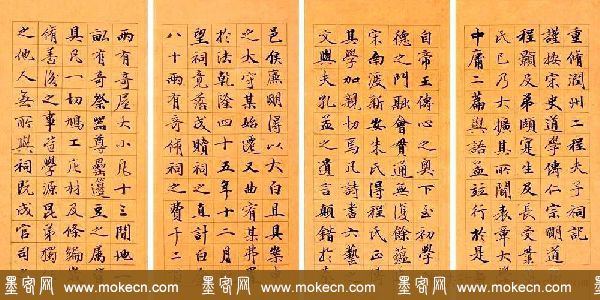 重脩潤州二程夫子祠記
謹按宋史道學傳仁宗明道
程顥及弟頤寔生及長受業
氏已乃大擴其所聞表章大學
中庸二篇與語孟並行於是
自帝王傳心之奧下至初學
德之門融會貫通無復餘蘊
宋南渡新安朱氏得程氏正
其學加親切焉凡詩書六藝
文與夫孔孟之遺言顛錯於
邑侯廉明得以大白且具案
之大守其始又曲宥其弗
於法乾隆四十五年十二月
望祠竟落成贖祠之直計白
八十兩有奇脩祠之費千二
兩有奇屋大小凡十三間地一
畝有奇祭器尊罍籩豆之屬
具民一切鳩工庀材及條編
脩善後之事皆學源昆弟獨
之他人無所與祠既成官司
墨客网 www.mokecn.com
墨客网 www.mokecn.com
墨客网 www.mokecn.com
墨客网 www.mokecn.com